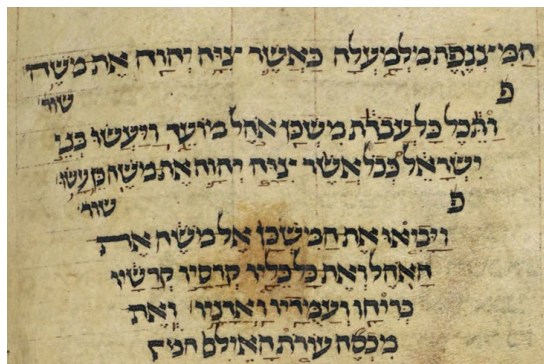 המצנפת מלמעלה כאשר צוה יהוה את משה
פ שור
ותכל כל עבדת משכן אהל מועד ויעשו בני
ישראל ככל אשר צוה יהוה את משה כן עשו
פ שור
ויביאו את המשכן אל משה את
האהל ואת כל כליו קרסיו קרשיו
בריחו ועמדיו ואדניו ואת
מכסה עורת האילם